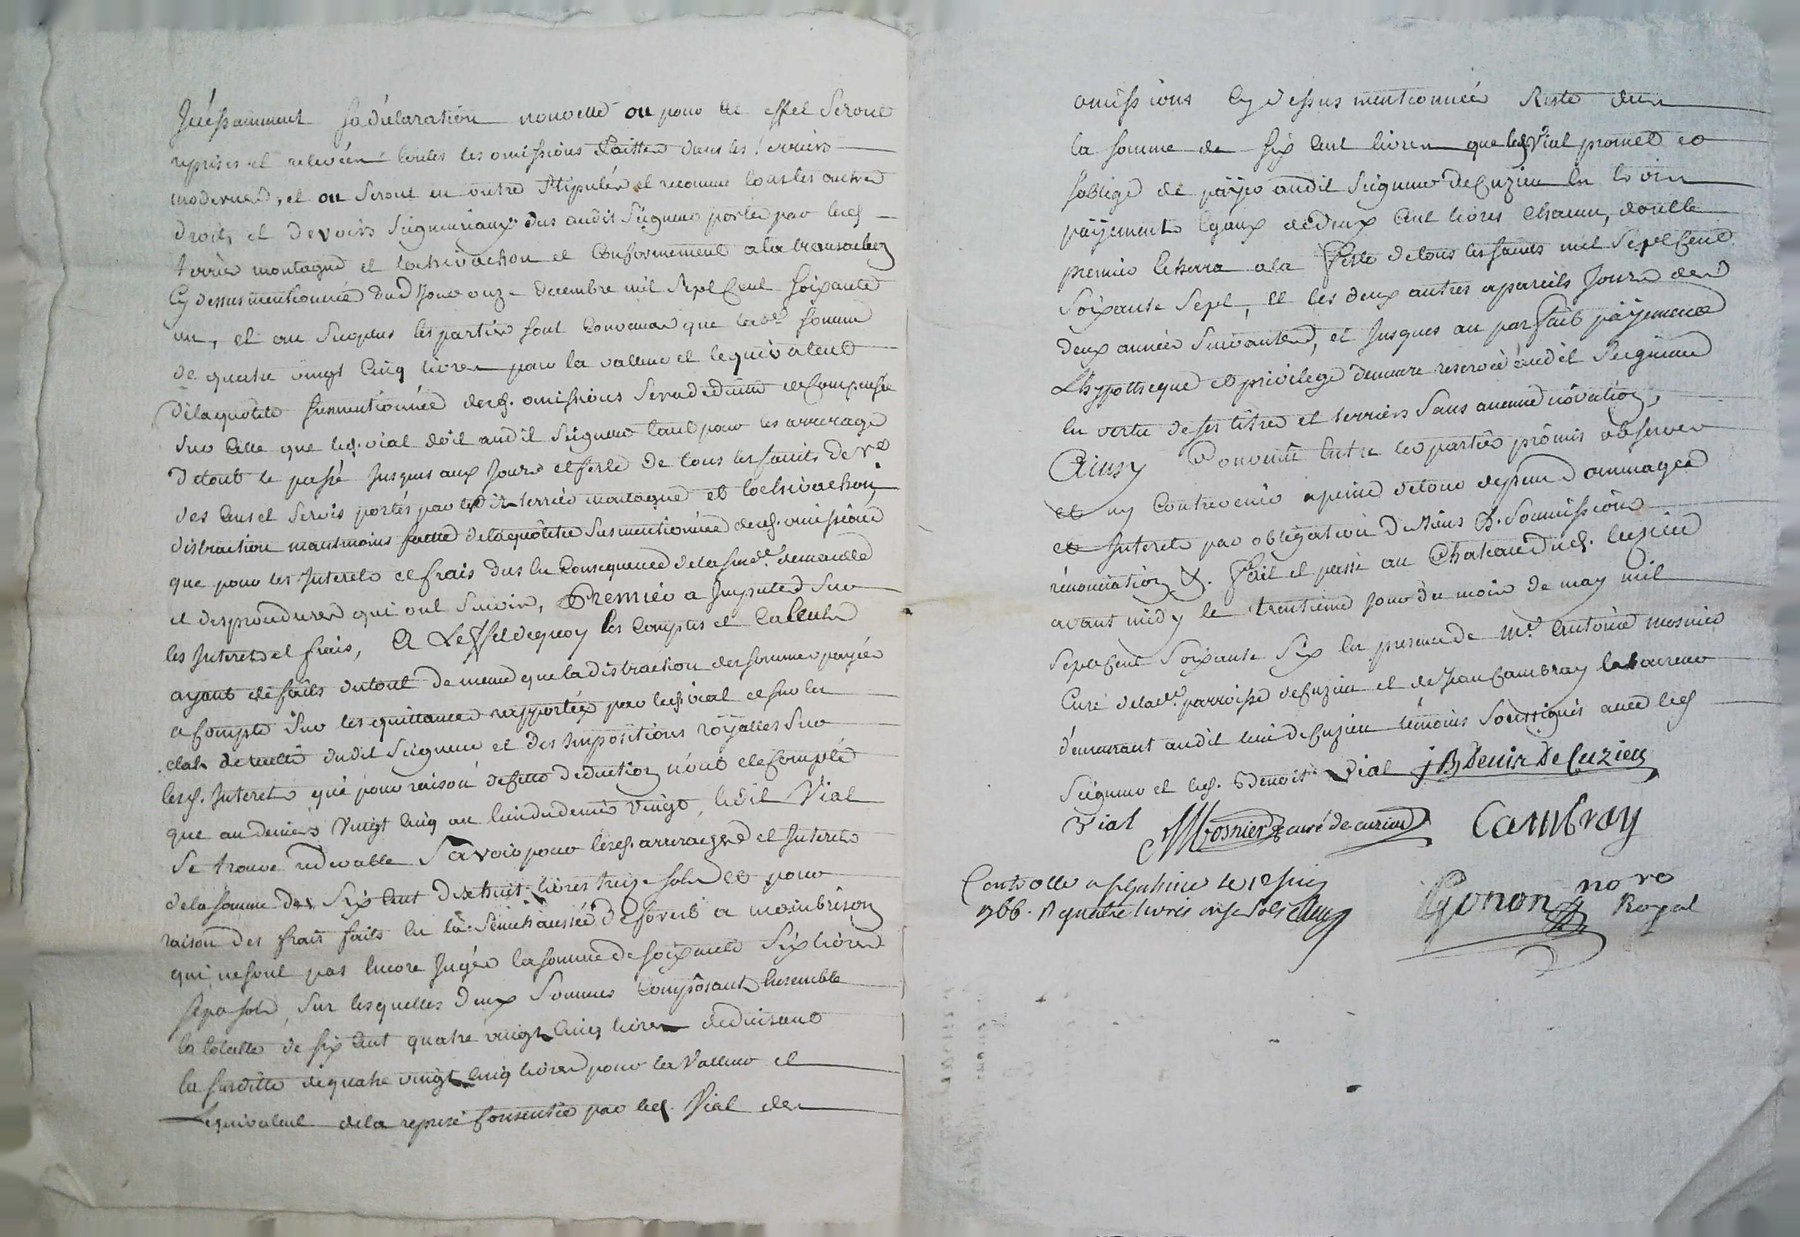 sa déclaration nouvelle ou pour cet effet seront
reprises et relevées toutes les omissions faittes dans les terriers
modernes, et ou seront en outre stipulés et reconnus tous les autres
droits et devoirs seigneuriaux dus audit seigneur portés par lesd.
terriers montagne et et conformement a la transaction
cy dessus mentionnée dud. jour onze decembre mil sept cent soixante
un, et au surplus les parties sont convenues que lad.e somme
de quatre vingt cinq livres pour la valleur et lequivalent
de la quotité susmentionnée desd. omissions sera deduitte et compensée
sur celle que led. vial doit audit seigneur tant pour les arrerages
de tout le passé jusques aux jour et feste de tous les saints de
des cens et servis portés par lesd. terriers montagne et
distraction neantmoins faitte de la quotitée susmentionnée desd. omissions
que pour les interets et frais dus en consequence de la sus.e demande
et des procedures qui ont suivies, premier a imputer sur
les interets et frais, a leffet dequoy les comptes et calculs
ayant eté faits du tout de meme que la distraction des sommes payées
a compte sur les quittances rapportées par led. vial et sur les
dudit seigneur et des impositions royalles sur
lesd. interets que pour raison de cette deduction nont eté comptés
que au denier vingt cinq au lieu du denier vingt, ledit Vial
se trouve redevable savoir pour lesd. arrerages et interets
de la somme de six cent dix huit livres treize sols et pour
raison des frais faits en la senechaussée de forest a montbrison
qui ne sont pas encore jugés la somme de soixante six livres
sept sols, sur lesquelles deux sommes composant ensemble
la totalle de six cent quatre vingt cinq livres deduisant
la susditte de quatre vingt cinq livres pour la valleur et
lequivalent de la reprise consentie par led. Vial des
omissions cy dessus mentionnées Reste due
la somme de six cent livres que led. Vial promet et
soblige de payer audit seigneur de Cuzieu en trois
payements egaux de deux cent livres chacun, dont le
premier echerra a la feste de tous les saints mil sept cent
soixante sept, et les deux autres a pareils jours des
deux années suivantes, et jusques au parfait payement
Lhypotheque et privilege demeure reservé audit seigneur
en vertu de ses titres et terriers sans aucune novation,
Ainsy convenu entre les parties promis observer
et ny contrevenir a peine de tous depens dommages
et interets par obligation de biens & soumissions
renonciation &. fait et passé au Chateau dud. Cuzieu
avant midy le trentieme jour du mois de may mil
sept cent soixante six en presence de m.e antoine mosnier
Curé de lad.e parroisse de Cuzieu et de jean Cambray laboureur
demeurant audit lieu de Cuzieu temoins soussignés avec led.
Seigneur et led. Benoit Vial j B Denis De Cuzieu
Vial Mosnier curé de cuzieu Cambray
Controllé a le
1766. R quatre livres onze sols
Gonon no re
Royal